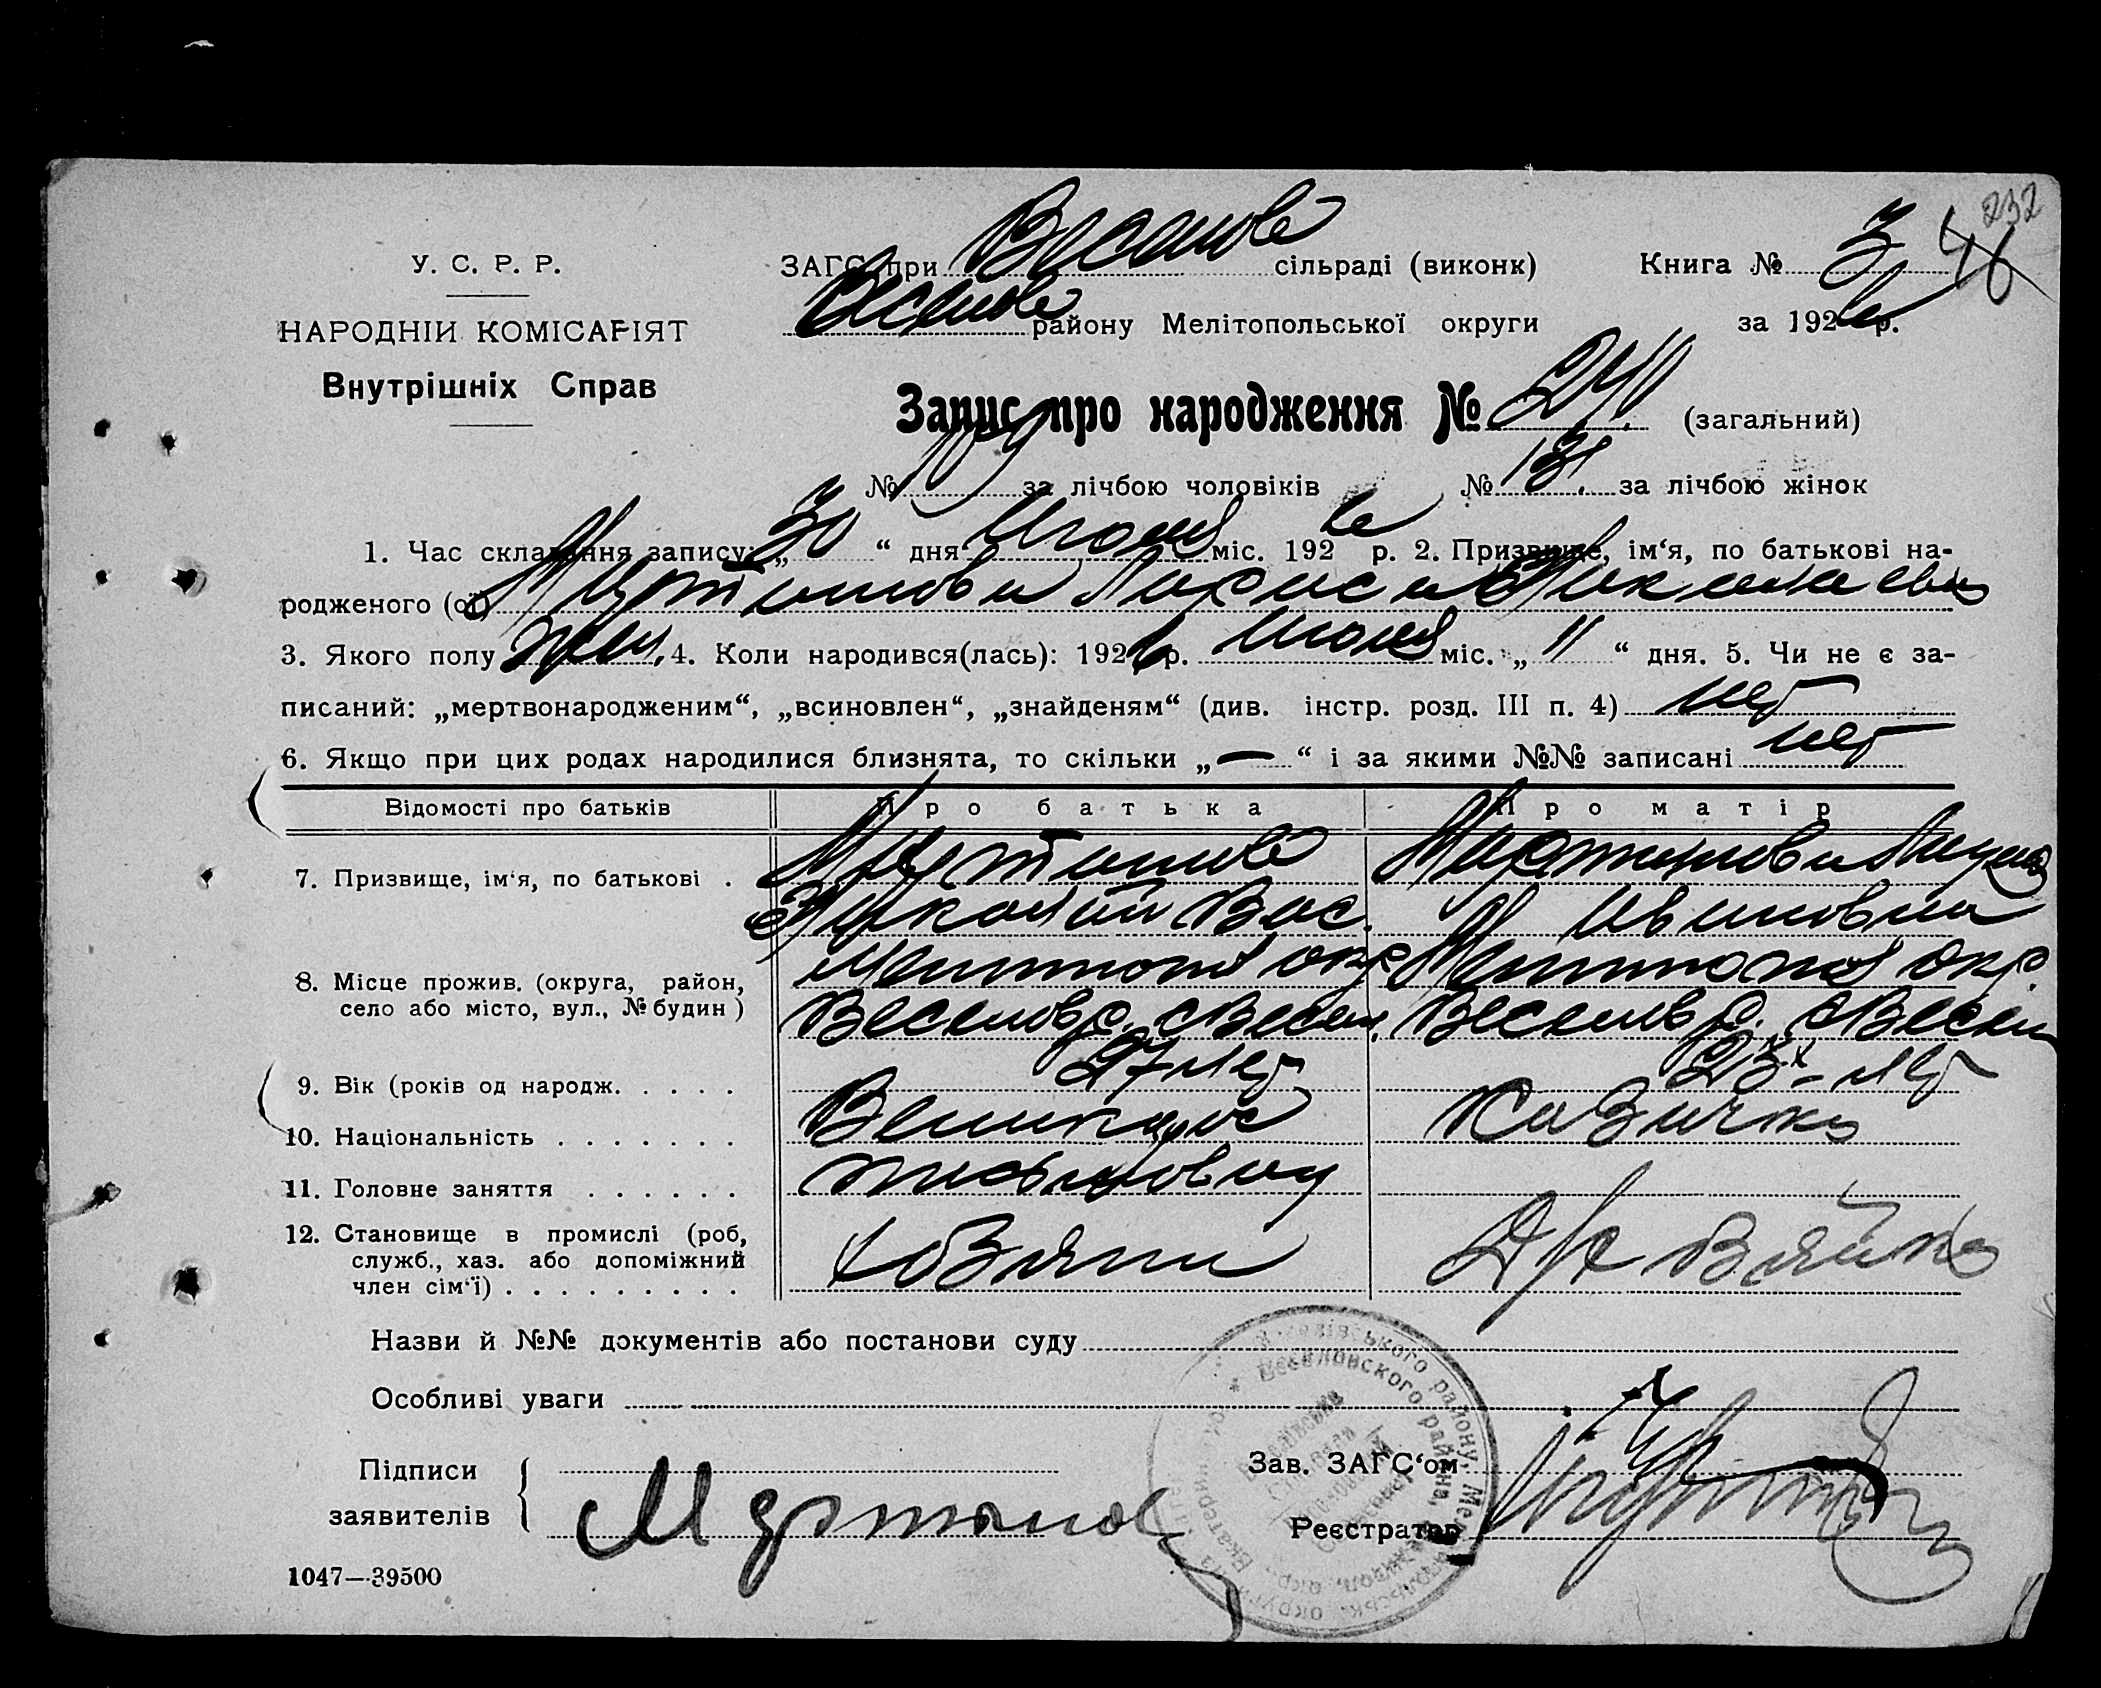 232
У. С. Р. Р.
НАРОДНІЙ КОМІСАРІЯТ
Внутрішніх Справ
ЗАГС при сільраді (виконк)
району Мелітопольської округи
Книга № 3
за 1926 р.
Запис про народження № 240. (загальний)
№ 109 за лічбою чоловіків № 131. за лічбою жінок
1. Час складання запису: „30“ дня Июля міс. 1926 р. 2. Призвище, ім‘я, по батькові на-
родженого (ої) Мартинова Лариса Николаевна
3. Якого полу жен. 4. Коли народився(лась): 1926 р. Июля міс. „11“ дня. 5. Чи не є за-
писаний: „мертвонародженим“, „всиновлен“, „знайденям“ (див. інстр. розд. III п. 4) нет
6. Якщо при цих родах народилися близнята, то скільки „—“ і за якими №№ записані нет
Відомості про батьків Про батька Про матір
7. Призвище, ім‘я, по батькові . Мартинов Мартинова
Николай Вас. Ивановна
8. Місце прожив. (округа, район, Мелитопол окр Мелитопол окр.
село або місто, вул., № будин ) Веселов р. с Весел. Веселов р. с Весел
9. Вік (років од народж. . . . . 27 лет 23 - лет
10. Національність . . . . . . .
11. Головне заняття . . . . . .
12. Становище в промислі (роб,
служб., хаз. або допоміжний
член сім‘ї) . . . . . . . . . хозяин
Назви й №№ документів або постанови суду
Особливі уваги
Підписи
заявителів Мартинов
Зав. ЗАГС‘ом
Реєстратор
1047—39500